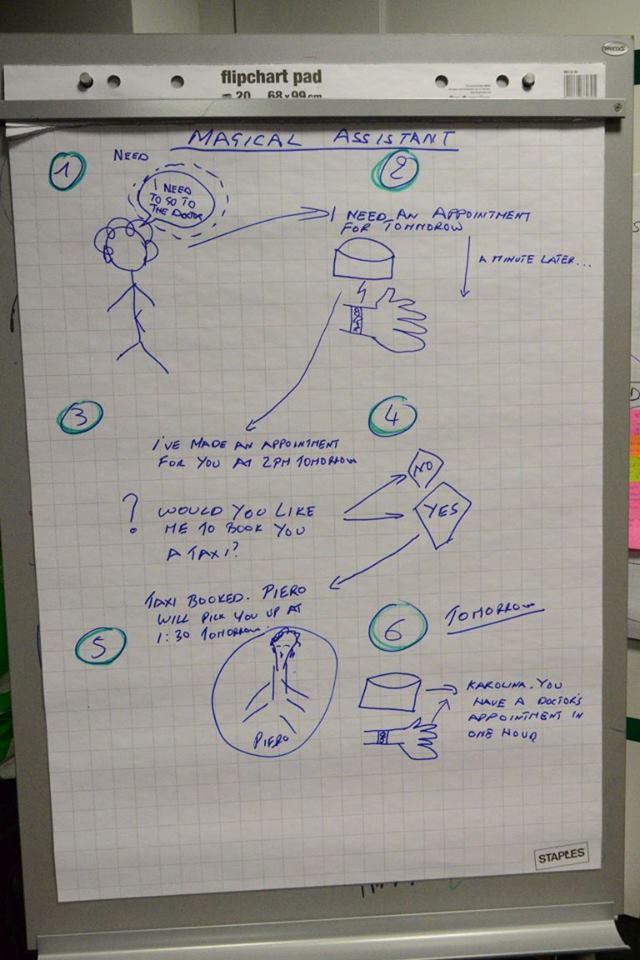 flipchart pad
20 68 x 99 cm
MAGICAL ASSISTANT
1
NEED
I NEED
TO GO TO
THE DOCTOR
2
I NEED AN APPOINTMENT
FOR TOMMOROW
A MINUTE LATER...
3
I'VE MADE AN APPOINTMENT
FOR YOU AT 2PM TOMORROW
?
WOULD YOU LIKE
ME TO BOOK YOU
A TAXI?
4
NO
YES
5
TAXI BOOKED. PIERO
WILL PICK YOU UP AT
1:30 TOMORROW.
PIERO
6
TOMORROW
KAROLINA. YOU
HAVE A DOCTOR'S
APPOINTMENT IN
ONE HOUR
STAPLES